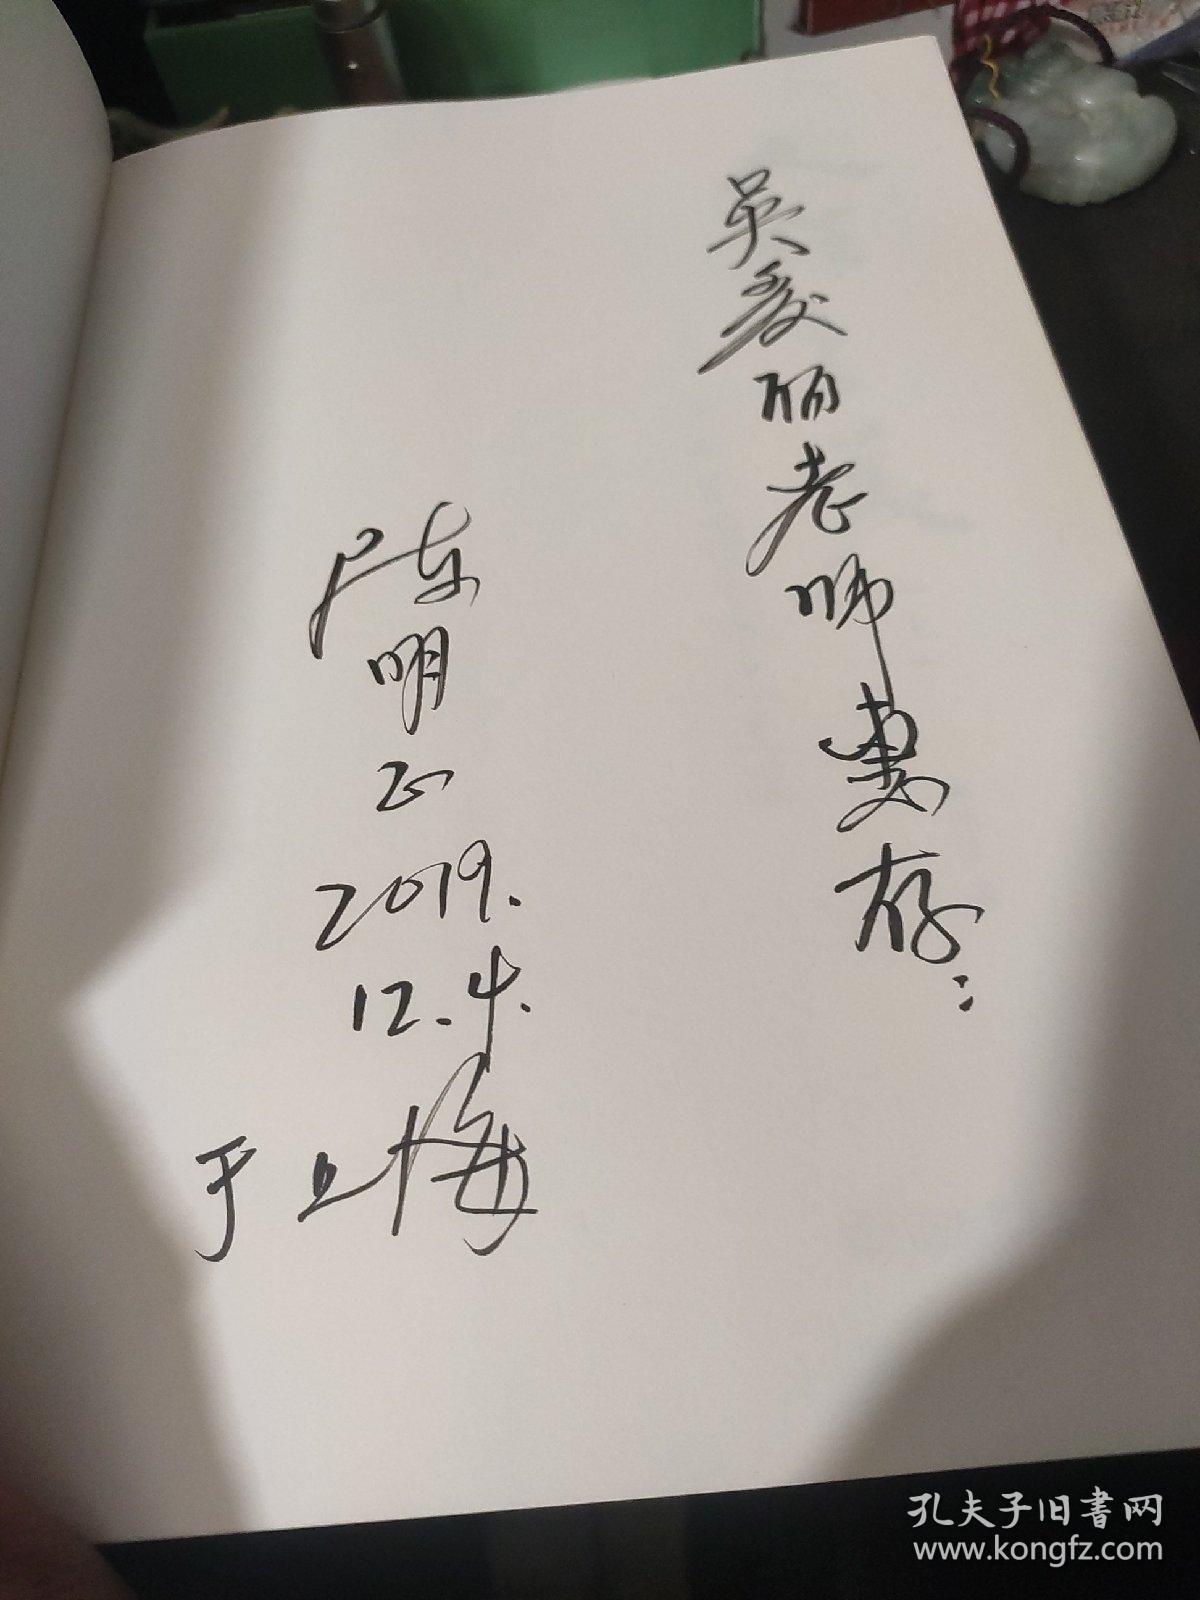 吴爱丽老师惠存：
陈明正
2019.
12.4.
于上海
孔夫子旧书网
www.kongfz.com